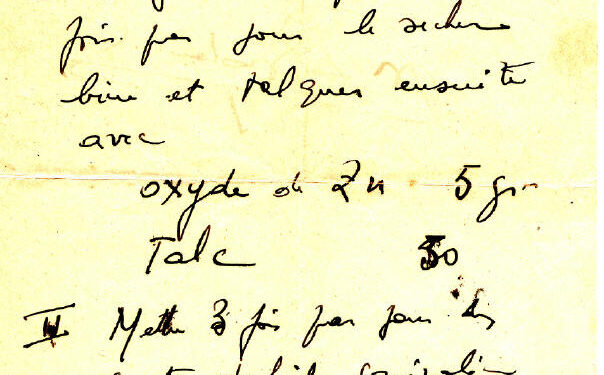 fois par jour le sécher
bien et talquer ensuite
avec
oxyde de Zn 5 gr
Talc 50
II Mettre 3 fois par jour